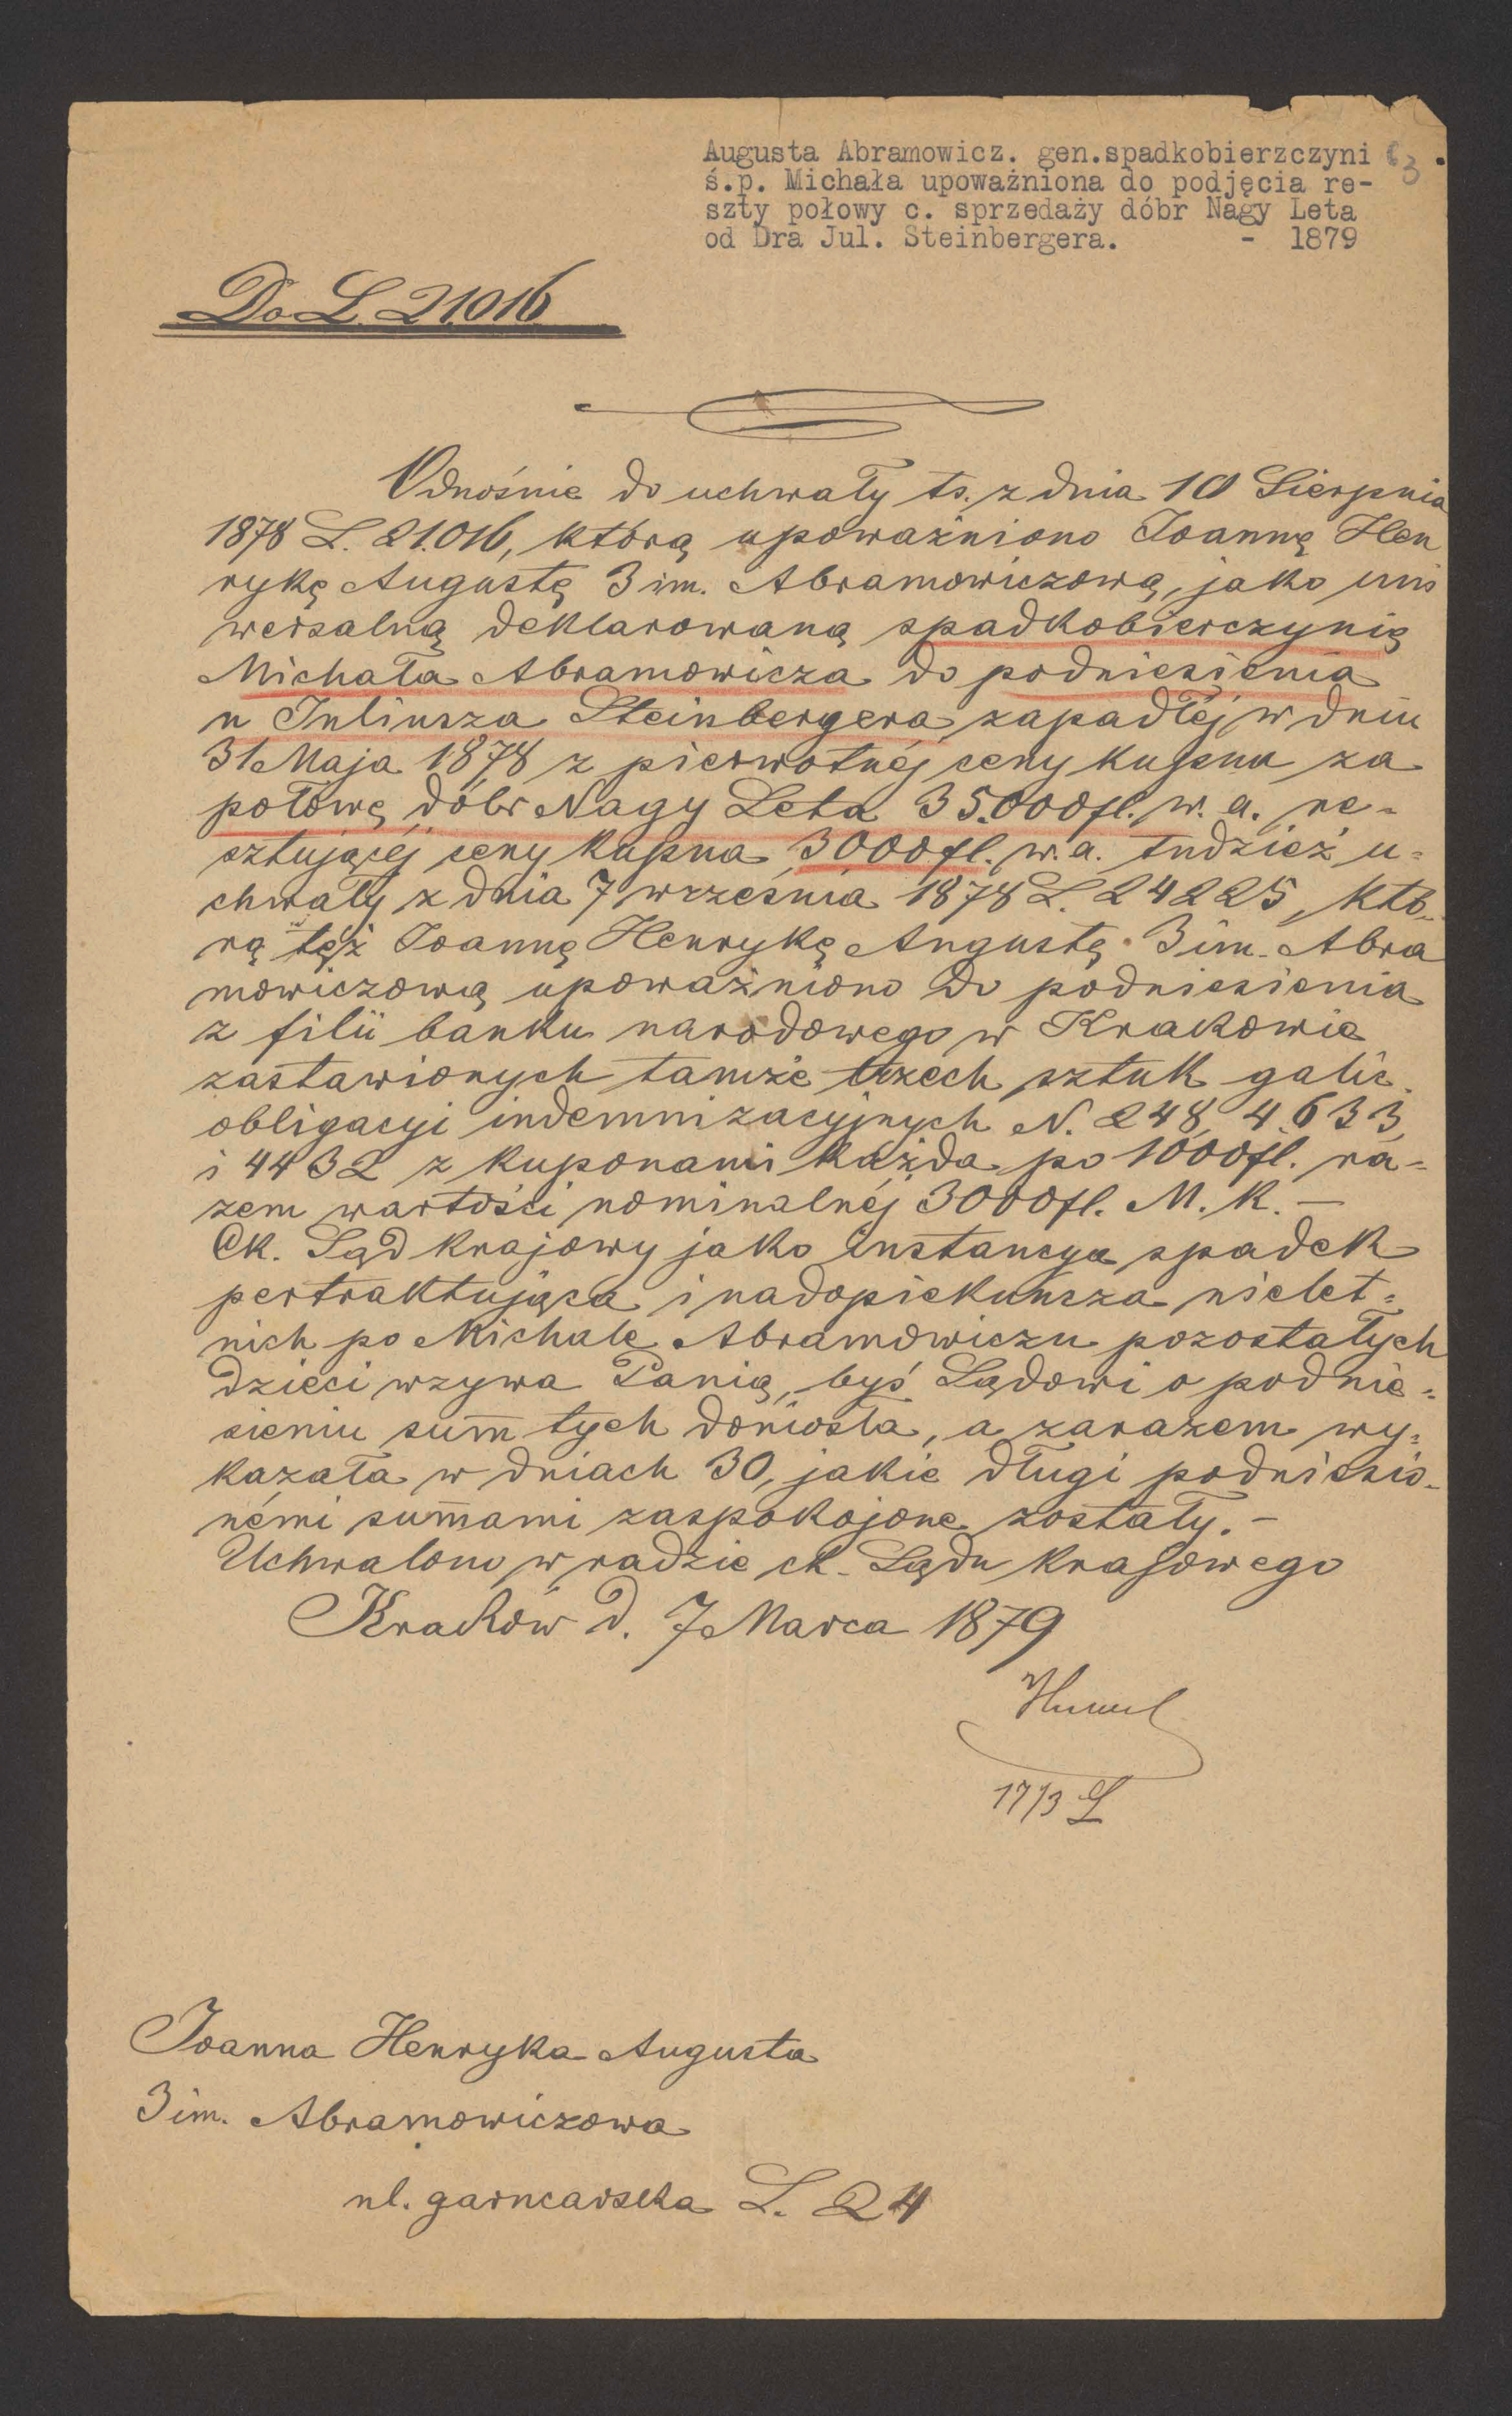 Augusta Abramowicz. gen.spadkobierzczyni
ś.p. Michała upoważniona do podjęcia re-
szty połowy c. sprzedaży dóbr Nagy Leta
od Dra Jul. Steinbergera. - 1879
3
Do L. 21016
Odnośnie do uchwały ts. z dnia 10 Sierpnia
1878 L. 21.016, którą upoważniono Joannę Hen
rykę Augustę 3 im. Abramowiczową, jako uni
wersalną deklarowaną spadkobierczynię
Michała Abramowicza do podniesienia
u Juliusza Steinbergera zapadłéj w dniu
31 Maja 1878 z pierwotnéj ceny kupna za
połowę dóbr Nagy Leta 35.000 fl. w. a. re=
sztującéj ceny kupna 3000 fl. w. a. tudzież u=
chwały z dnia 7 września 1878 L. 24225, któ-
rą też Joannę Henrykę Augustę 3 im. Abra
mowiczową upoważniono do podniesienia
z filii banku narodowego w Krakowie
zastawionych tamże trzech sztuk galic.
obligacyi indemnizacyjnych N. 248, 4.633,
i 4432 z kuponami każda po 1000 fl. ra=
zem wartości nominalnéj 3000 fl. M. K. —
Ck. Sąd krajowy jako instancya spadek
pertraktująca i nadopiekuńcza nielet=
nich po Michale Abramowiczu pozostałych
dzieci wzywa Panią, byś Sądowi o podnie=
sieniu sum̅ tych doniosła, a zarazem wy=
kazała w dniach 30, jakie długi podniesio-
némi sum̅ami zaspokojone zostały. —
Uchwalono w radzie ck. Sądu krajowego
Kraków d. 7 Marca 1879
17/3
Joanna Henryka Augusta
3 im. Abramowiczowa
ul. garncarska L. 24